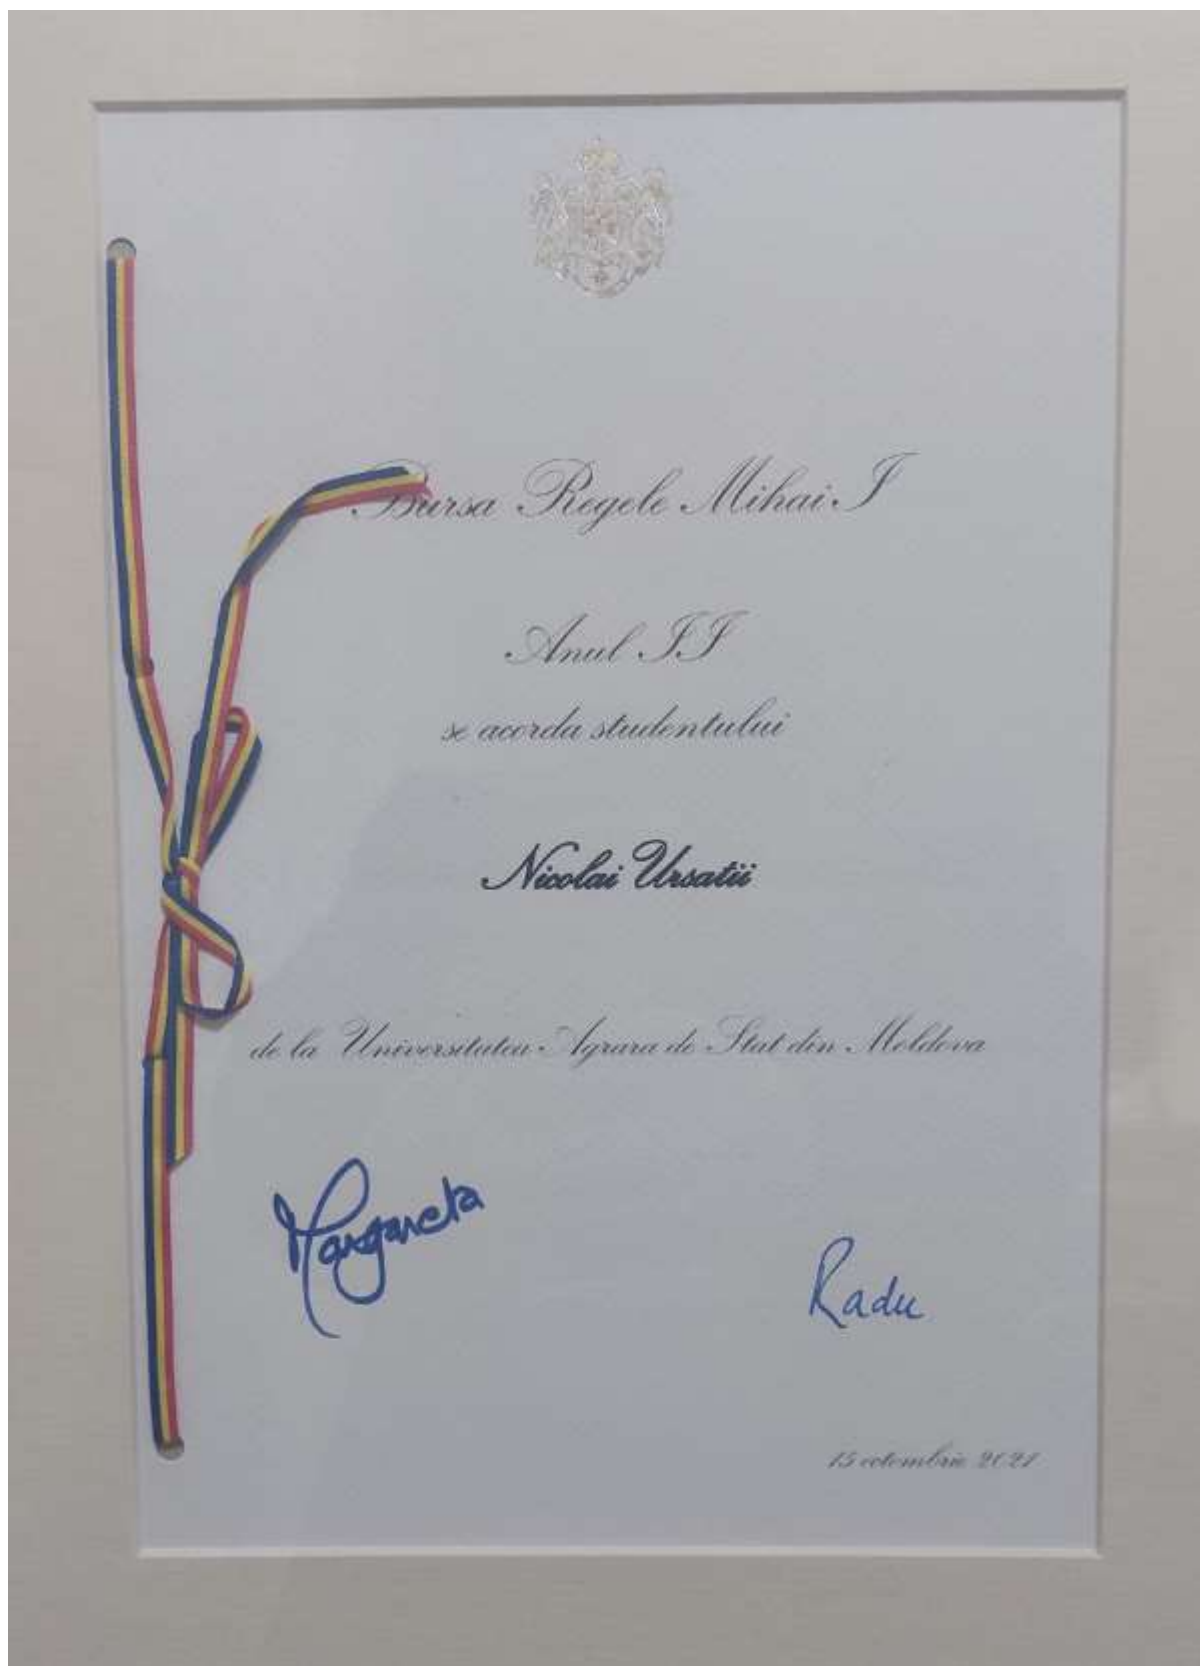 Bursa Regele Mihai I
Anul II
se acorda studentului
Nicolai Ursatii
de la Universitatea Agrara de Stat din Moldova
Margareta
Radu
15 octombrie 2021